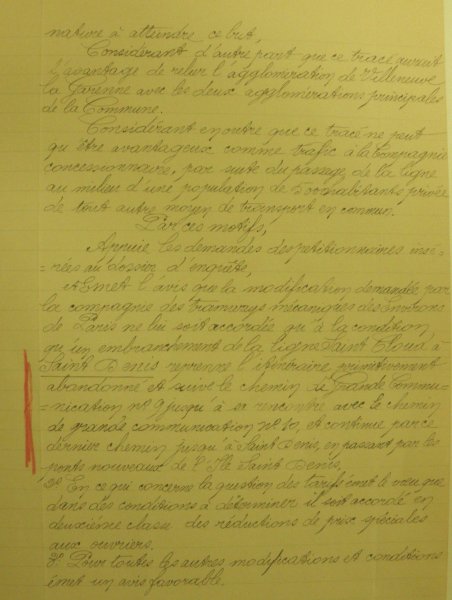 nature à atteindre ce but,
Considérant d'autre part que ce tracé aurait
l'avantage de relier l'agglomération de Villeneuve
la Garenne avec les deux agglomérations principales
de la Commune.
Considérant en outre que ce tracé ne peut
qu'être avantageux comme trafic à la Compagnie
concessionnaire, par suite du passage de la ligne
au milieu d'une population de habitants privée
de tout autre moyen de transport en commun.
Par ces motifs,
Appuie les demandes des petitionnaires insé-
-rées au dossier d'enquête,
Émet l'avis que la modification demandée par
la compagnie des tramways mécaniques des environs
de Paris ne lui soit accordée qu'à la condition
qu'un embranchement de la ligne Saint Cloud à
Saint Denis reprenne l'itinéraire primitivement
abandonné et suive le chemin de Grande Commu-
-nication n° 9 jusqu'à sa rencontre avec le chemin
de grande communication n° 10, et continue par ce
dernier chemin jusqu'à Saint Denis, en passant par les
ponts nouveaux de l'Ile Saint Denis.
2° En ce qui concerne la question des tarifs émet le vœu que
dans des conditions à déterminer il soit accordé en
deuxième classe des réductions de prix spéciales
aux ouvriers.
3° Pour toutes les autres modifications et conditions
émet un avis favorable.